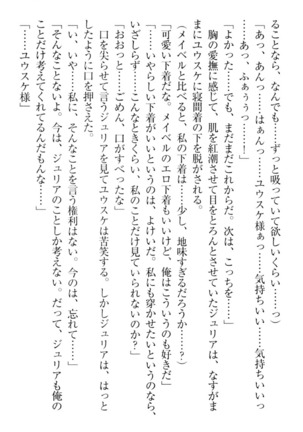 ることなら、なんでも……ずっと吸っていて欲しいくらい……っ）
「あっ、あんっ……はぁんっ……ユウスケ様ぁっ……気持ちいい……気持ちいいっ
……あっ、ふぁぅぅっ……！」
「よかった……でも、まだまだこれからだ。次は、こっちを……」
胸の愛撫に感じて、肌を紅潮させて目をとろんとさせていたジュリアは、なすがま
まにユウスケに寝間着の下を脱がされる。
（メイベルと比べると、私の下着は……少し、地味すぎるだろうか……？）
「可愛い下着だな。メイベルのエロ下着もいいけど、俺はこういうのも好きだ」
「いやらしい下着がいいというのは、よけいだ。私にも穿かせたいというのなら、
いざしらず……こんなときくらい、私のことだけ見ていられないのか？」
「おおっと……ごめん、口がすべったな」
口を尖らせて言うジュリアを見てユウスケは苦笑する。しかしジュリアは、はっと
したように口を押さえた。
「い、いや……私に、そんなことを言う権利はない。今のは、忘れて……」
「そんなことないよ。今は、ジュリアのことしか考えない。だって、ジュリアも俺の
ことだけ考えてくれてるんだもんな……」
「……ユウスケ様……」